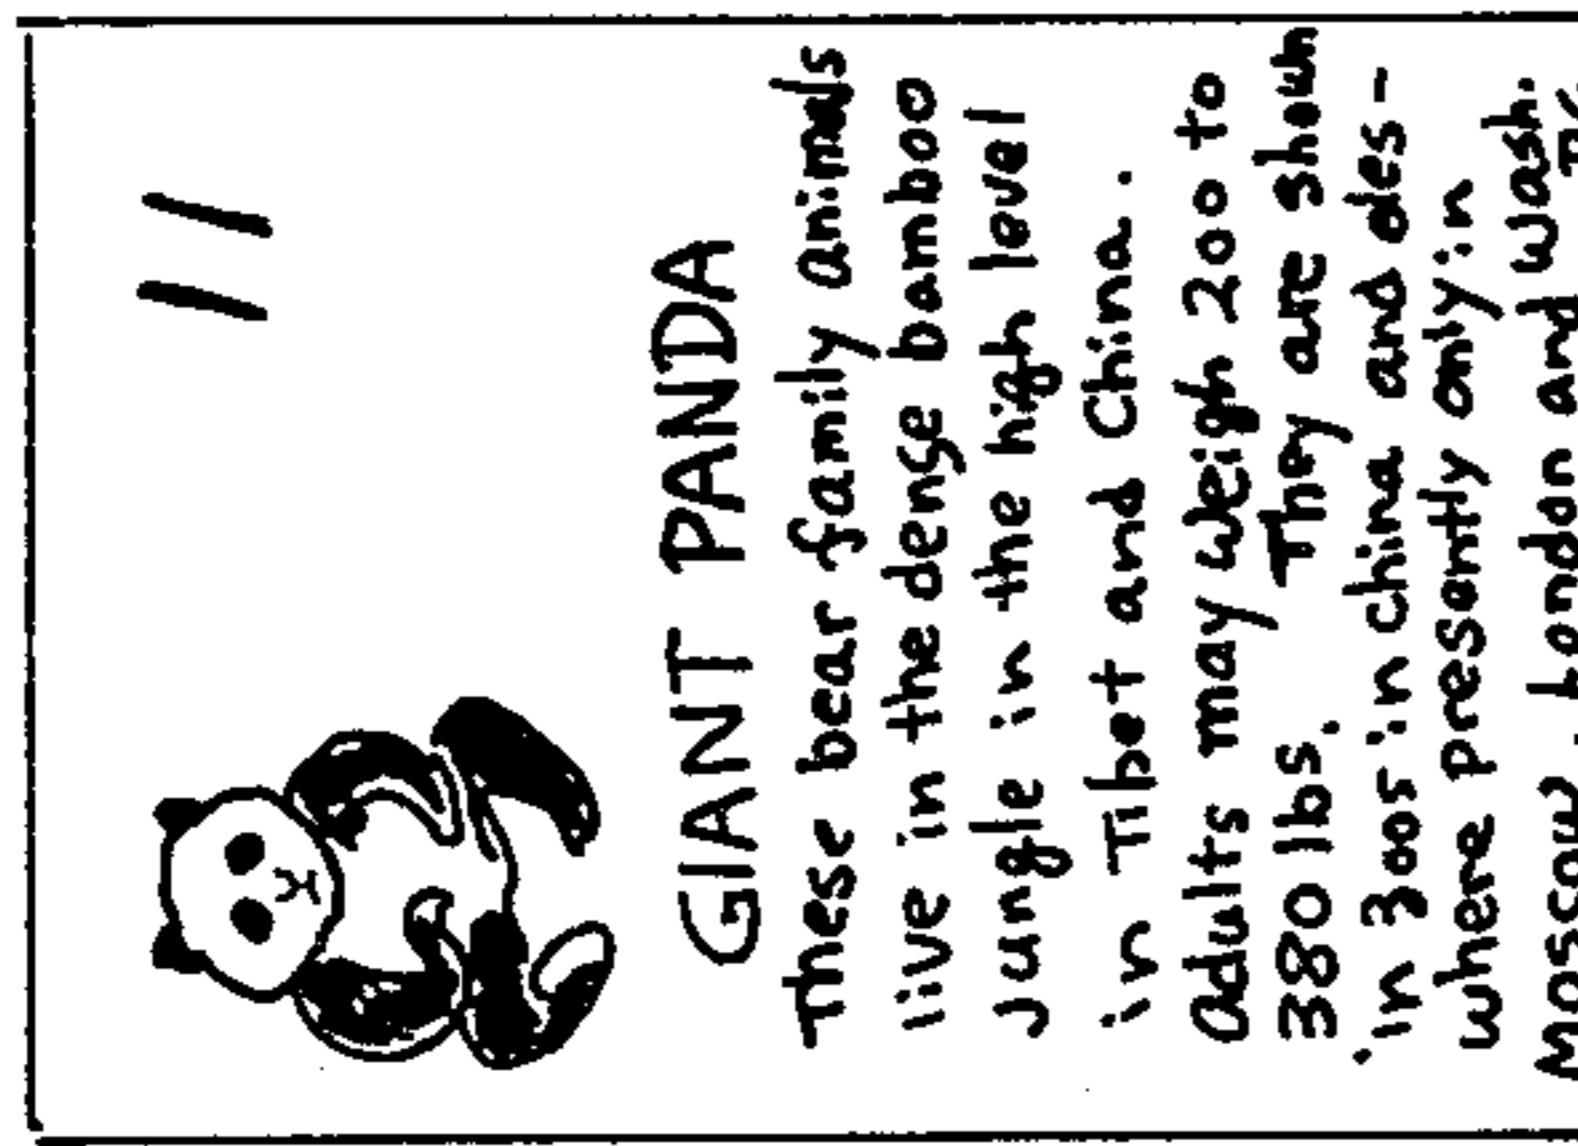 11
GIANT PANDA
These bear family animals
live in the dense bamboo
Jungle in the high level
in Tibet and China.
Adults may weigh 200 to
380 lbs. They are shown
in zoos in china and des-
where presently only in
Moscow, London and Wash.